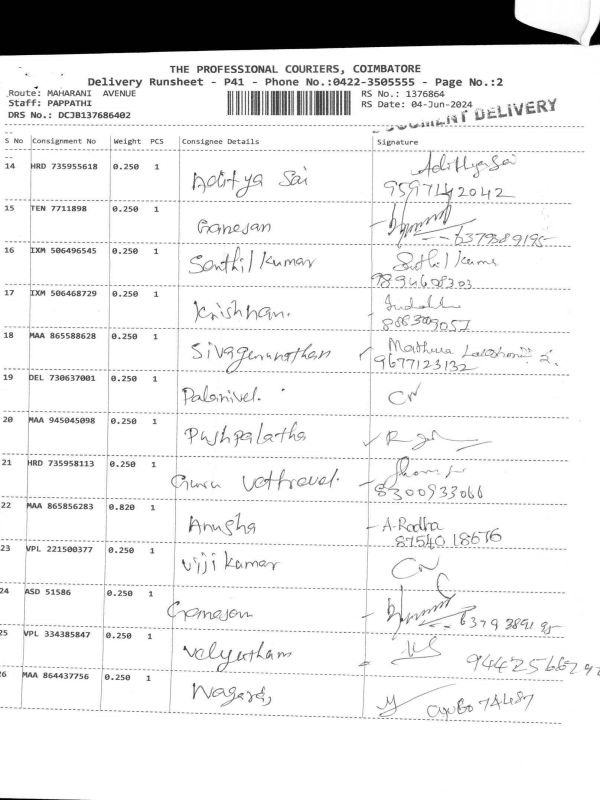 THE PROFESSIONAL COURIERS, COIMBATORE
Delivery Runsheet - P41 - Phone No.:0422-3505555 - Page No.:2
Route: MAHARANI AVENUE
RS No.: 1376864
Staff: PAPPATHI
RS Date: 04-Jun-2024
DRS No.: DCJB137686402
DOCUMENT DELIVERY
S No Consignment No Weight PCS Consignee Details Signature
14 HRD 735955618 0.250 1 Aditya Sai Adithya Sai
9597142042
15 TEN 7711898 0.250 1 Ganesan
6379389195
16 IXM 506496545 0.250 1 Senthil Kumar
9894608303
17 IXM 506468729 0.250 1 Krishnan.
18 MAA 865588628 0.250 1 Mathura
9677123132
19 DEL 730637001 0.250 1 Palanivel. CN
20 MAA 945045098 0.250 1 Pushpalatha
21 HRD 735958113 0.250 1 Guru Vethravel.
8300933066
22 MAA 865856283 0.820 1 Anusha A. Radha
87540 18676
23 VPL 221500377 0.250 1 Vijikumar CN
24 ASD 51586 0.250 1 Ganesan
6379389195
25 VPL 334385847 0.250 1 Velyutham
26 MAA 864437756 0.250 1